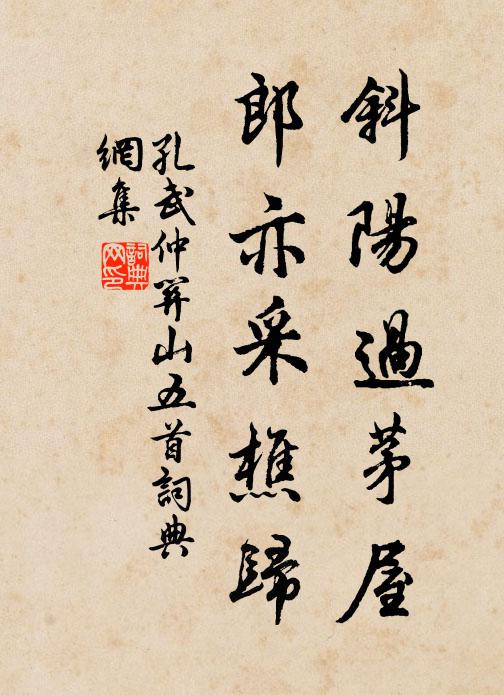 斜陽過茅屋
郎亦采樵歸
孔武仲羿山五首詞典
網集
詞典網印